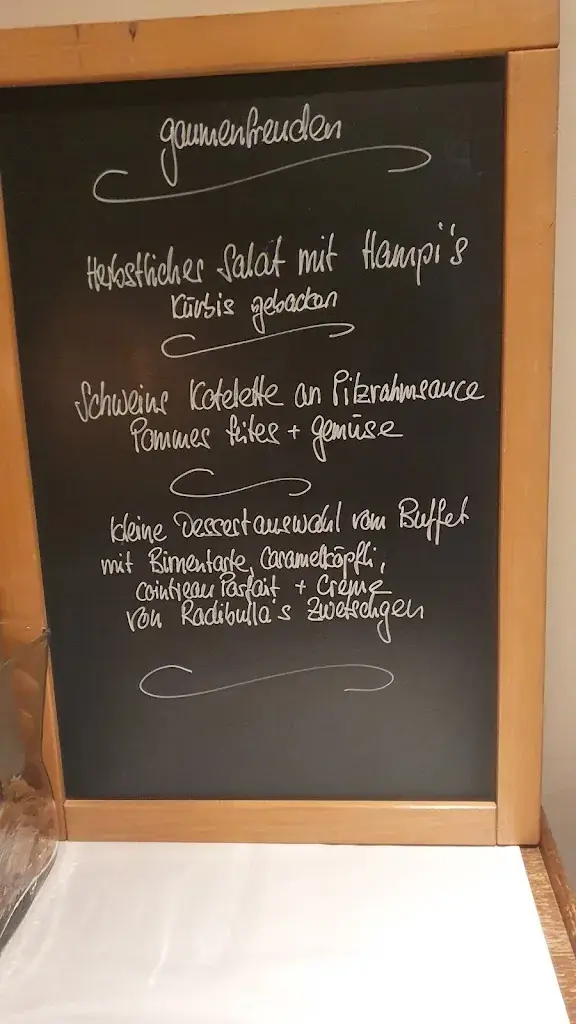 gaumenfreuden
Herbstlicher Salat mit Hampi's
Kürbis gebacken
Schweins Kotelette an Pilzrahmsauce
Pommes frites + gemüse
kleine Dessertauswahl vom Buffet
mit Birnentarte, Caramelköpfli,
cointreau Parfait + Creme
von Radibulla's Zwetschgen